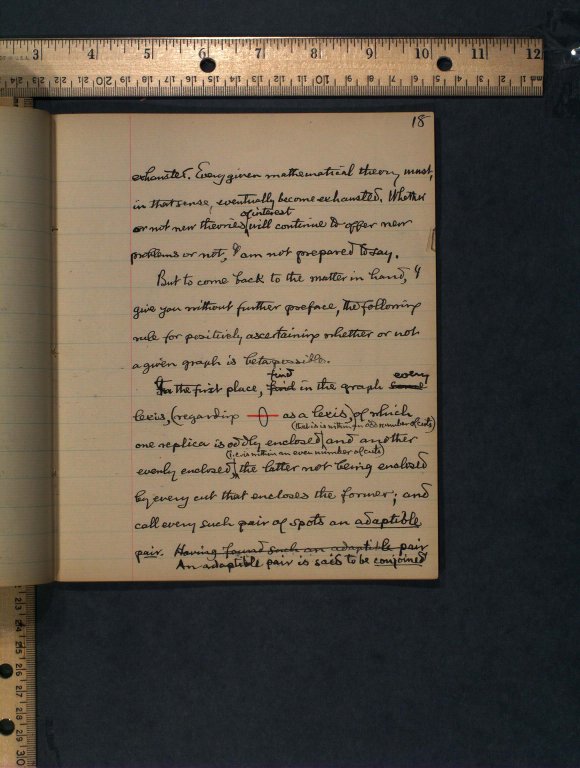 18
exhausted. Every given mathematical theory must,
in that sense, eventually become exhausted. Whether
of interest
or not new theories will continue to offer new
problems or not, I am not prepared to say.
But to come back to the matter in hand, I
give you without further preface, the following
rule for positively ascertaining whether or not
a given graph is beta-possible.
find every
In the first place, find in the graph some
lexis, (regarding as a lexis,) of which
(that is is within an odd number of cuts)
one replica is oddly enclosed and another
(i.e. is within an even number of cuts)
evenly enclosed, the latter not being enclosed
by every cut that encloses the former; and
call every such pair of spots an adaptible
pair. Having found such an adaptible pair
An adaptible pair is said to be conjoined